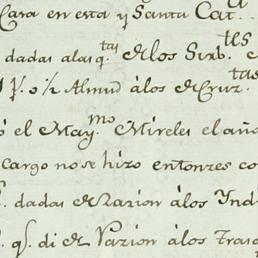 Cara en esta y Santa Cat.a
dadas alas q.tas de los Sirb.tes
1 p. o 1/2 Almud â los de Cruz.
ó el May.mo Mireles el año
cargo no se hizo entonzes co
dadas de Razion â los Indi
q.s di de Razion â los Trasq